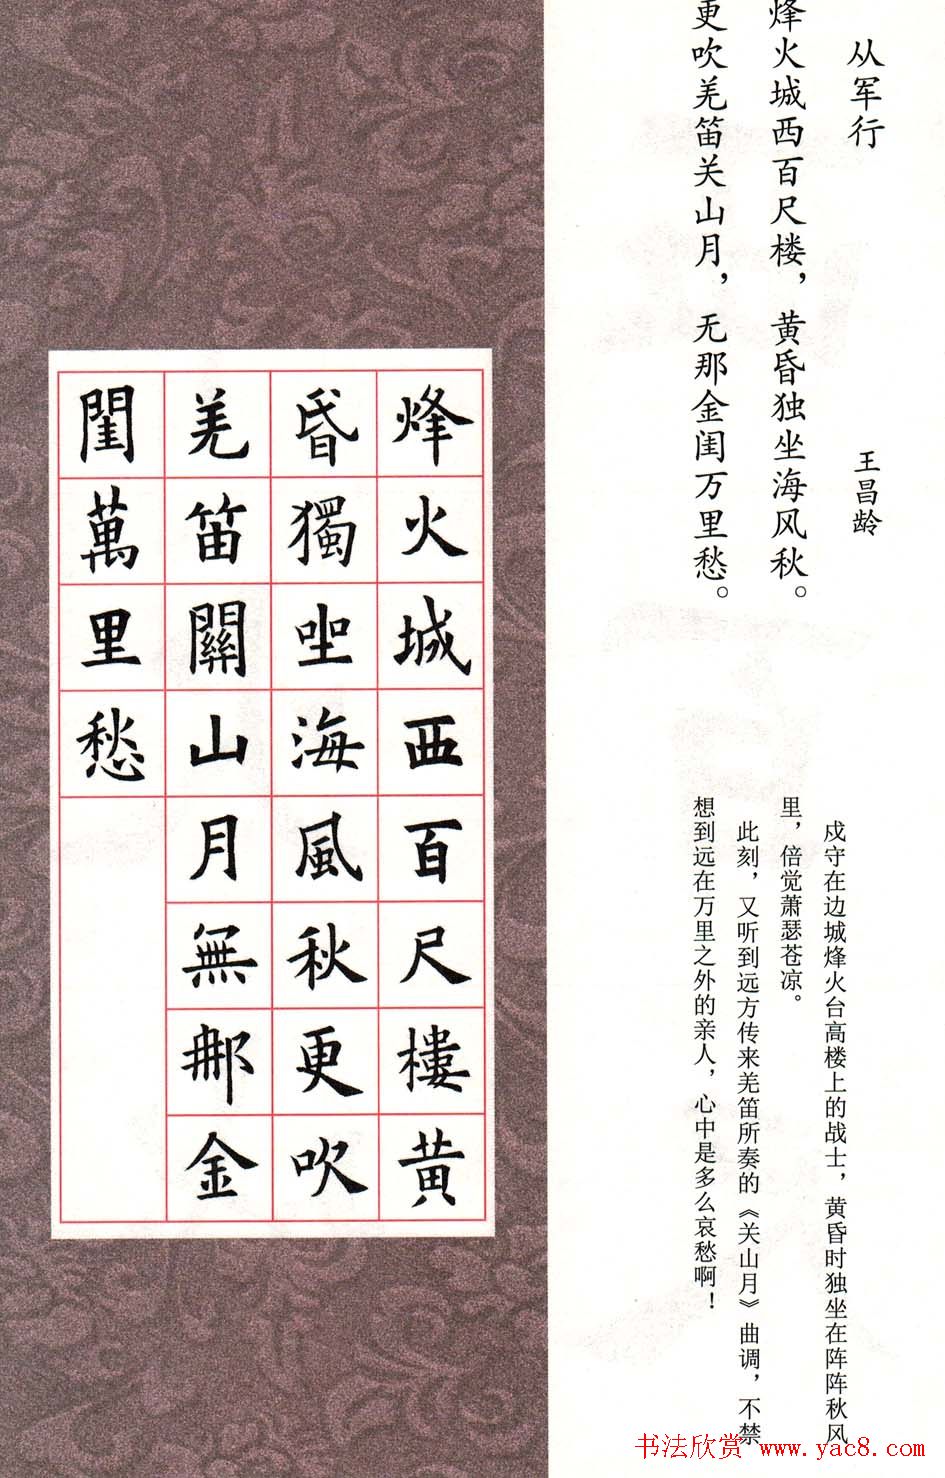 从军行
王昌龄
烽火城西百尺楼，黄昏独坐海风秋。
更吹羌笛关山月，无那金闺万里愁。
戍守在边城烽火台高楼上的战士，黄昏时独坐在阵阵秋风
里，倍觉萧瑟苍凉。
此刻，又听到远方传来羌笛所奏的《关山月》曲调，不禁
想到远在万里之外的亲人，心中是多么哀愁啊！
烽火城西百尺樓黄
昏獨坐海風秋更吹
羌笛關山月無那金
閨萬里愁
书法欣赏 www.yac8.com